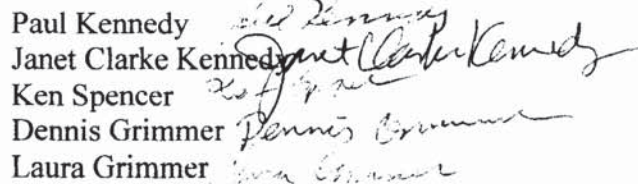 Paul Kennedy Paul Kennedy
Janet Clarke Kennedy Janet Clarke Kennedy
Ken Spencer Ken Spencer
Dennis Grimmer Dennis Grimmer
Laura Grimmer Laura Grimmer